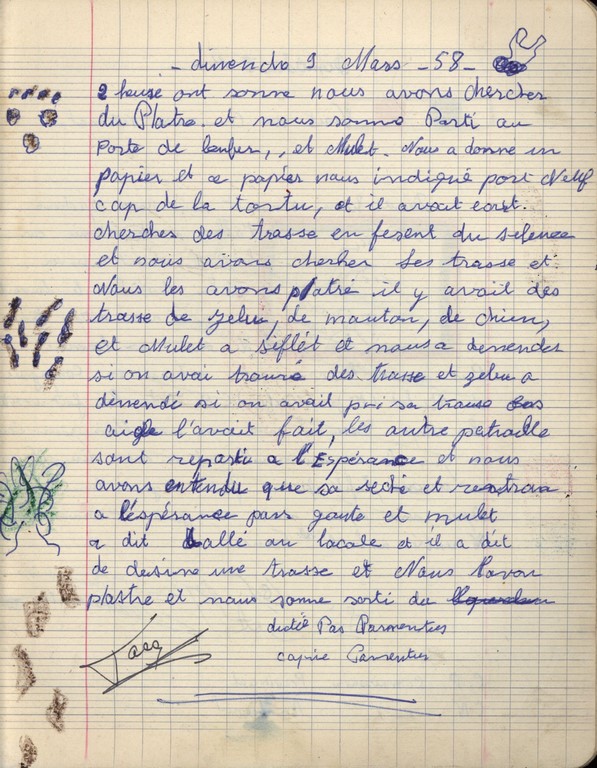 - dimendo 9 Mars - 58 -
2 heuse ont sonne nous avons chercher
du Platre. et nous sonne Parti au
Porte de et Mulet. Nous a donne un
papier et ce papier nous indiqué port Neuf
cap de la tortu, et il avait
chercher des trasse en fesent du silence
et nous avons chercher les trasse et
Nous les avons platré il y avait des
trasse de zebu, de mouton, de chien,
et Mulet a siflét et nous a demender
si on avai trouve des trasse et zebu a
demendé si on avait pri sa trasse
aigle l'avait fait, les autre patroulle
sont reparti a l'Espérance et nous
avons entendu que sa seche et rentron
a l'éspérance par gauste et mulet
a dit allé au locale et il a dit
de desine une trasse et Nous l'avon
plastre et nous sonne sorti du
dictée Pas Parmentier
copiie Parmentier